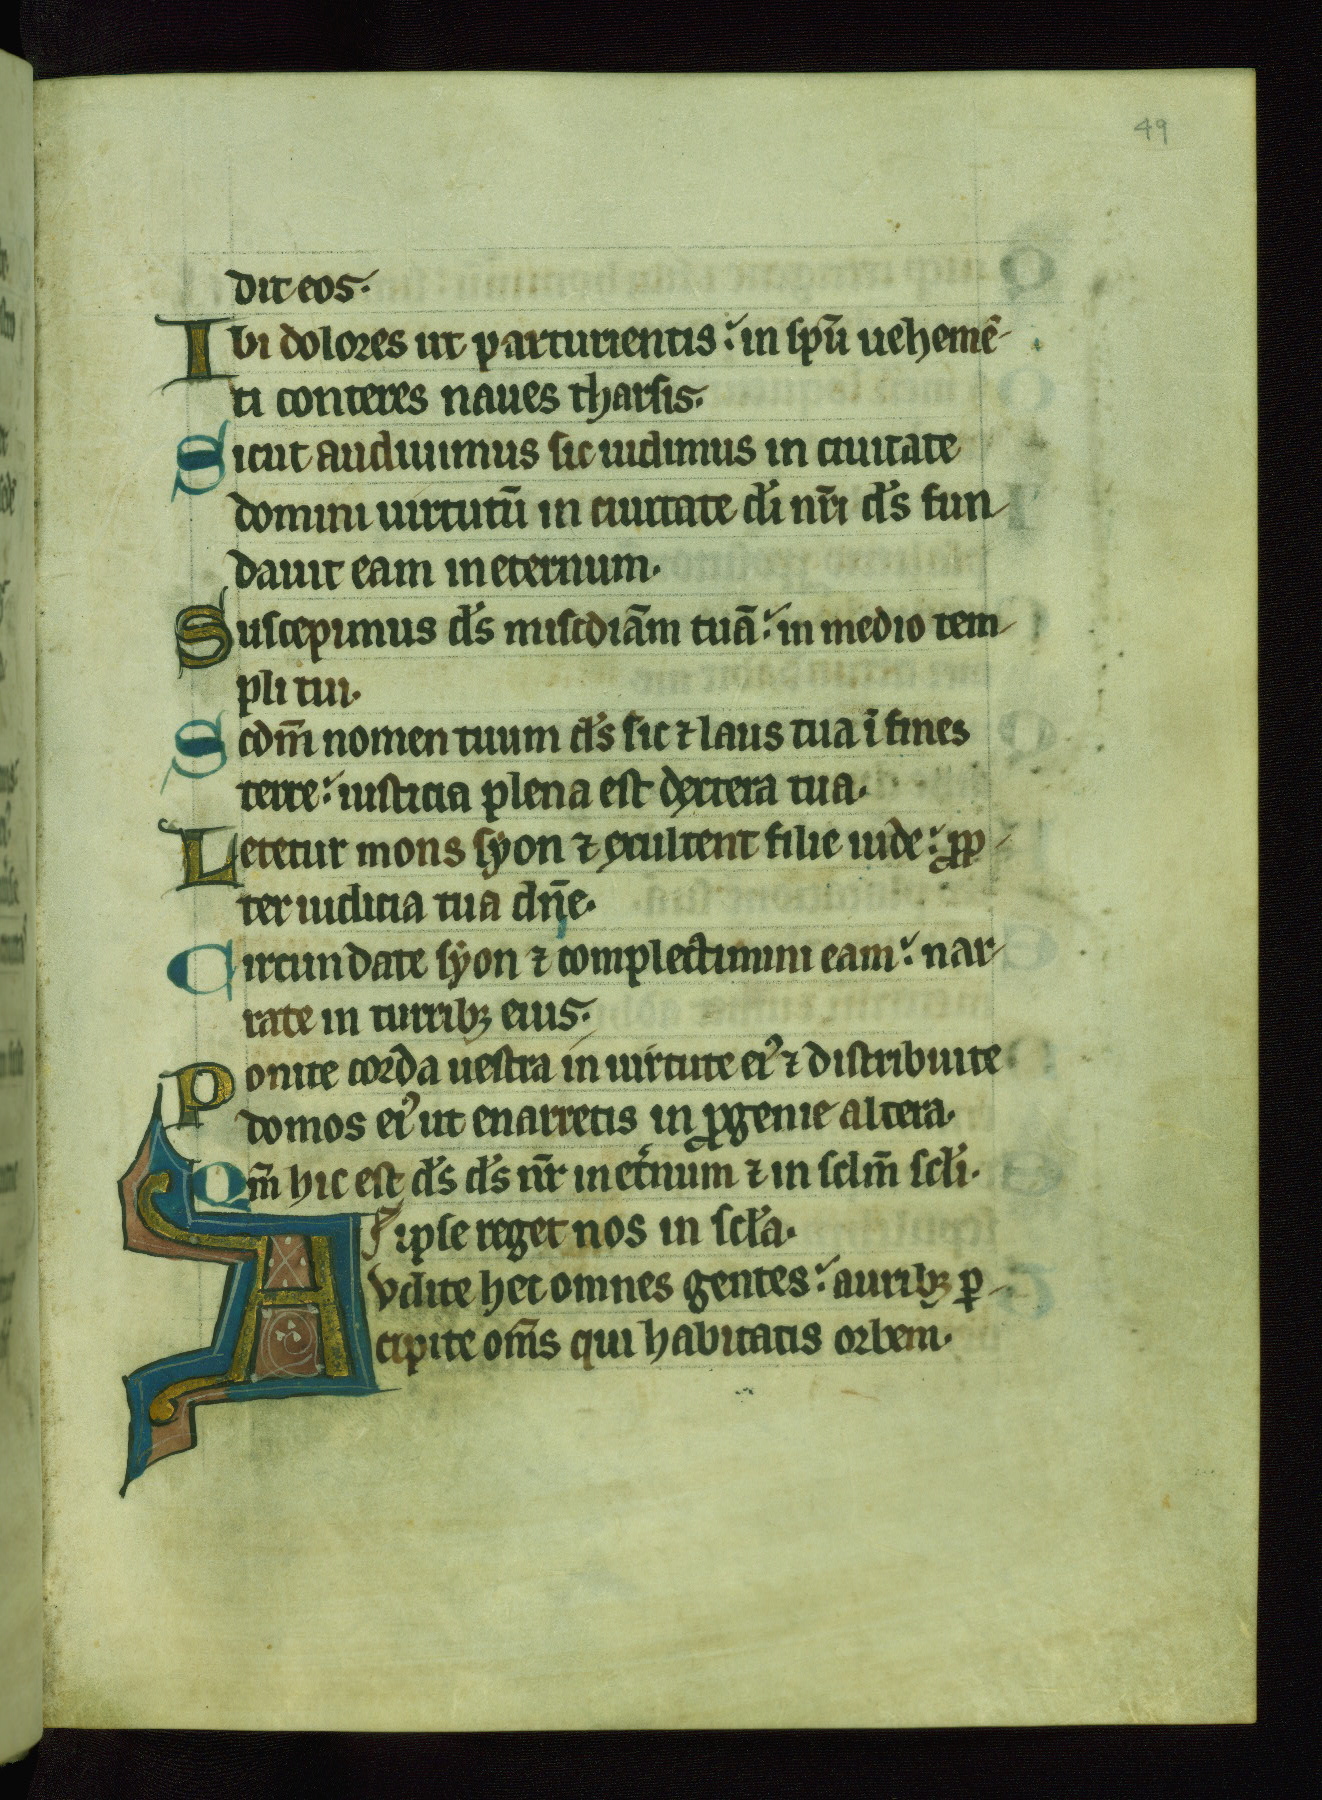 49
dit eos.
Ibi dolores ut parturientis: in spū uehemē-
ti conteres naues tharsis.
Sicut audiuimus sic uidimus in ciuitate
domini uirtutū in ciuitate di nri ds fun-
dauit eam in eternum.
Suscepimus ds miscdiam tuā: in medio tem-
pli tui.
Scdm nomen tuum ds sic ⁊ laus tua ī fines
terre: iusticia plena est dextera tua.
Letetur mons syon ⁊ exultent filie iude: ꝓp-
ter iudicia tua dne.
Circundate syon ⁊ complectimini eam: nar-
rate in turribꝫ eius.
Ponite corda uestra in uirtute ei⁹ ⁊ distribuite
domos ei⁹ ut enarretis in ꝓgenie altera.
Qm hic est ds ds nr in et̄num ⁊ in sclm scli.
ipse reget nos in scla.
Audite hec omnes gentes: auribꝫ ꝑ-
cipite oms qui habitatis orbem.